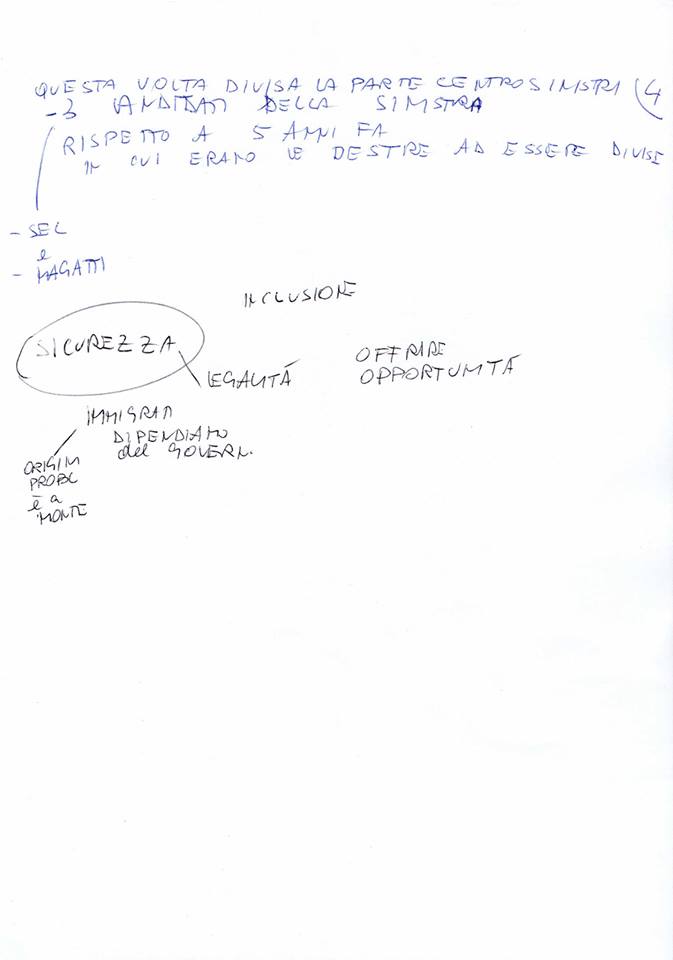 QUESTA VOLTA DIVISA LA PARTE CENTROSINISTRA (4
- 3 CANDIDATI DELLA SINISTRA
RISPETTO A 5 ANNI FA
IN CUI ERANO LE DESTRE AD ESSERE DIVISE
- SEL
e
- MAGATTI
INCLUSIONE
SICUREZZA
LEGALITÁ
OFFRIRE
OPPORTUNITÁ
IMMIGRATI
DIPENDIAMO
del GOVERN.
ORIGIN
PROBL
è a
MONTE